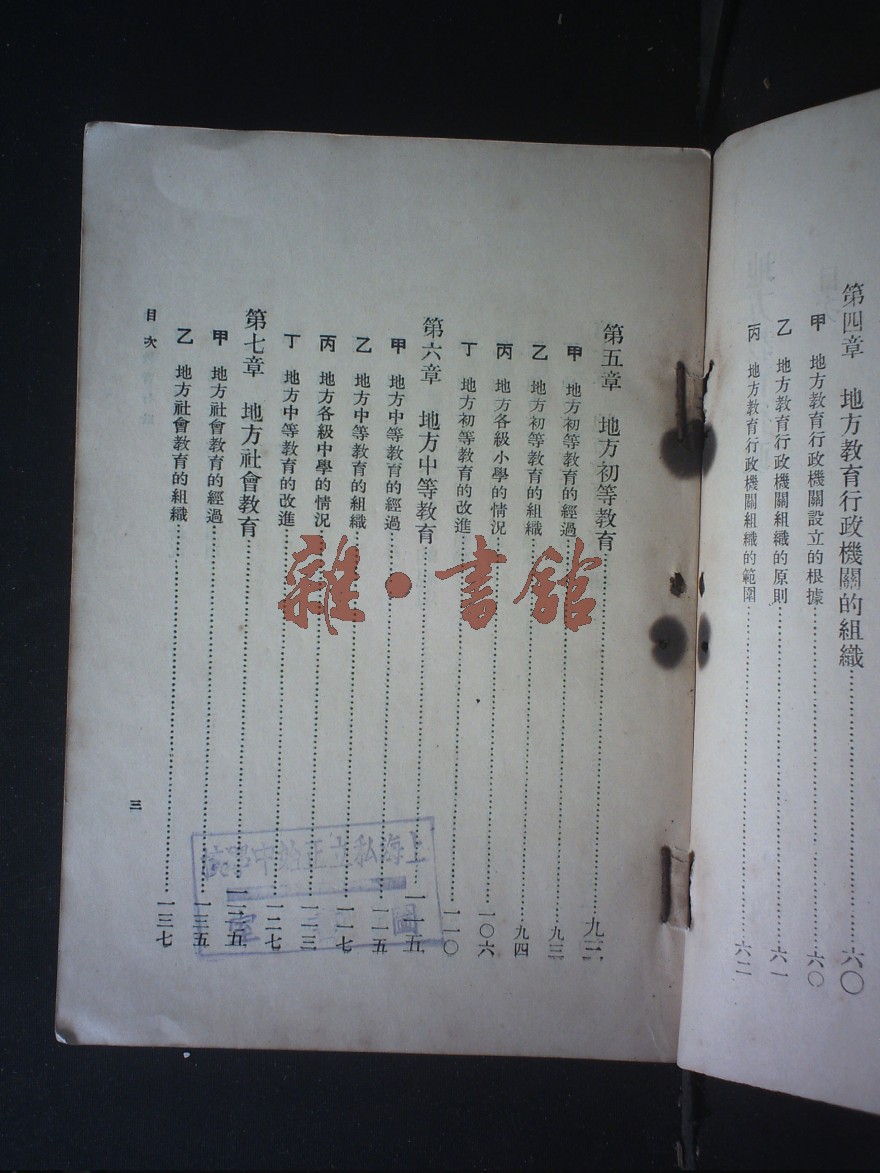 第四章 地方教育行政機關的組織……六〇
甲 地方教育行政機關設立的根據……六〇
乙 地方教育行政機關組織的原則……六一
丙 地方教育行政機關組織的範圍……六二
第五章 地方初等教育……九三
甲 地方初等教育的經過……九三
乙 地方初等教育的組織……九四
丙 地方各級小學的情況……一〇六
丁 地方初等教育的改進……一一〇
第六章 地方中等教育……一一五
甲 地方中等教育的經過……一一五
乙 地方中等教育的組織……一一七
丙 地方各級中學的情況……一二三
丁 地方中等教育的改進……一二七
第七章 地方社會教育……一三五
甲 地方社會教育的經過……一三五
乙 地方社會教育的組織……一三七
目次
三
雜·書館
上海私立正始中
圖 室